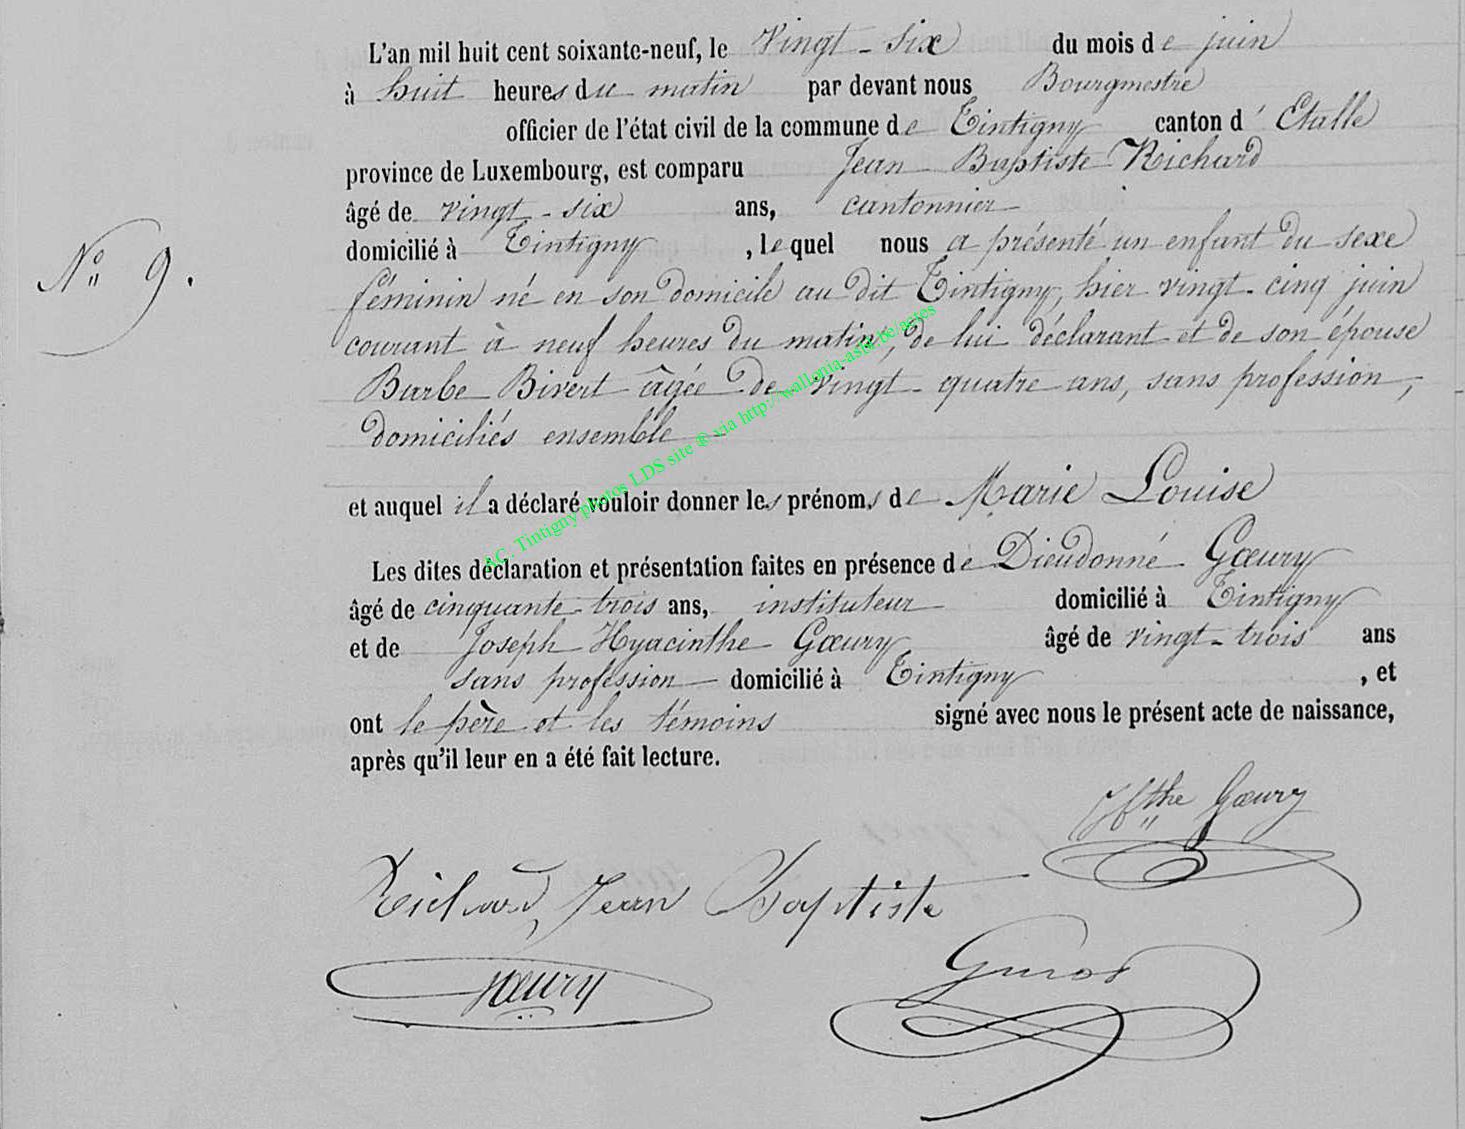 L'an mil huit cent soixante-neuf, le vingt-six du mois de juin
à huit heures du matin par devant nous Bourgmestre
officier de l'état civil de la commune de Tintigny canton d'Etalle
province de Luxembourg, est comparu Jean Baptiste Richard
âgé de vingt-six ans, cantonnier
domicilié à Tintigny, lequel nous a présenté un enfant du sexe
N° 9.
féminin né en son domicile au dit Tintigny, hier vingt-cinq juin
courant à neuf heures du matin, de lui déclarant et de son épouse
Barbe Bivert âgée de vingt-quatre ans, sans profession,
domiciliés ensemble
et auquel il a déclaré vouloir donner les prénoms de Marie Louise
Les dites déclaration et présentation faites en présence de Dieudonné Gœury
âgé de cinquante-trois ans, instituteur domicilié à Tintigny
et de Joseph Hyacinthe Gœury âgé de vingt-trois ans
sans profession domicilié à Tintigny, et
ont le père et les témoins signé avec nous le présent acte de naissance,
après qu'il leur en a été fait lecture.
Hthe Gœury
Richard, Jean Baptiste
Gœury
A.C. Tintigny photos LDS site ® via http://wallonia-asbl.be/actes